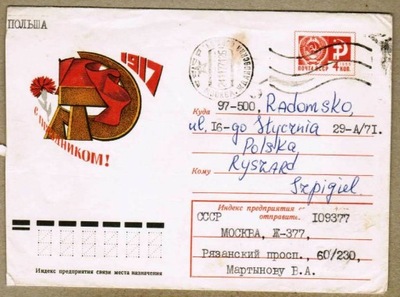 ПОЛЬША
1917
С ПРАЗДНИКОМ!
ПОЧТА СССР 4 КОП.
Куда 97-500, Radomsko,
ul. 16-go Stycznia 29-A/71.
Polska
Кому Ryszard
Szpigiel
Индекс предприятия
отправит.
СССР 109377
МОСКВА, Ж-377,
Рязанский просп., 60/230,
Мартынову В.А.
Индекс предприятия связи места назначения